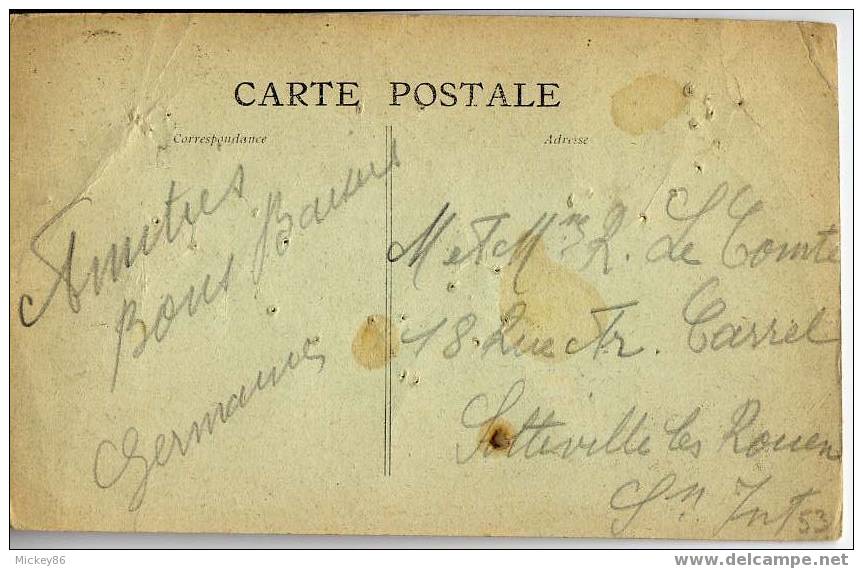 CARTE POSTALE
Correspondance
Adresse
Amitiés
Bons Baisers
Germaine
M et Mme R. Le Comte
18 Rue Ar. Carrel
Sotteville les Rouen
Sn Inf
53
Mickey86
www.delcampe.net